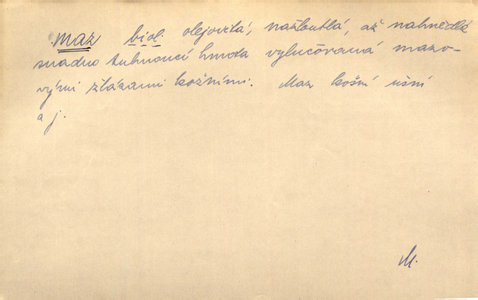 maz biol. olejovitá, nažloutlá, až nahnědlá
snadno tuhnoucí hmota vylučovaná mazo-
vými žlázami kožními. Maz kožní ušní
a j.
M.